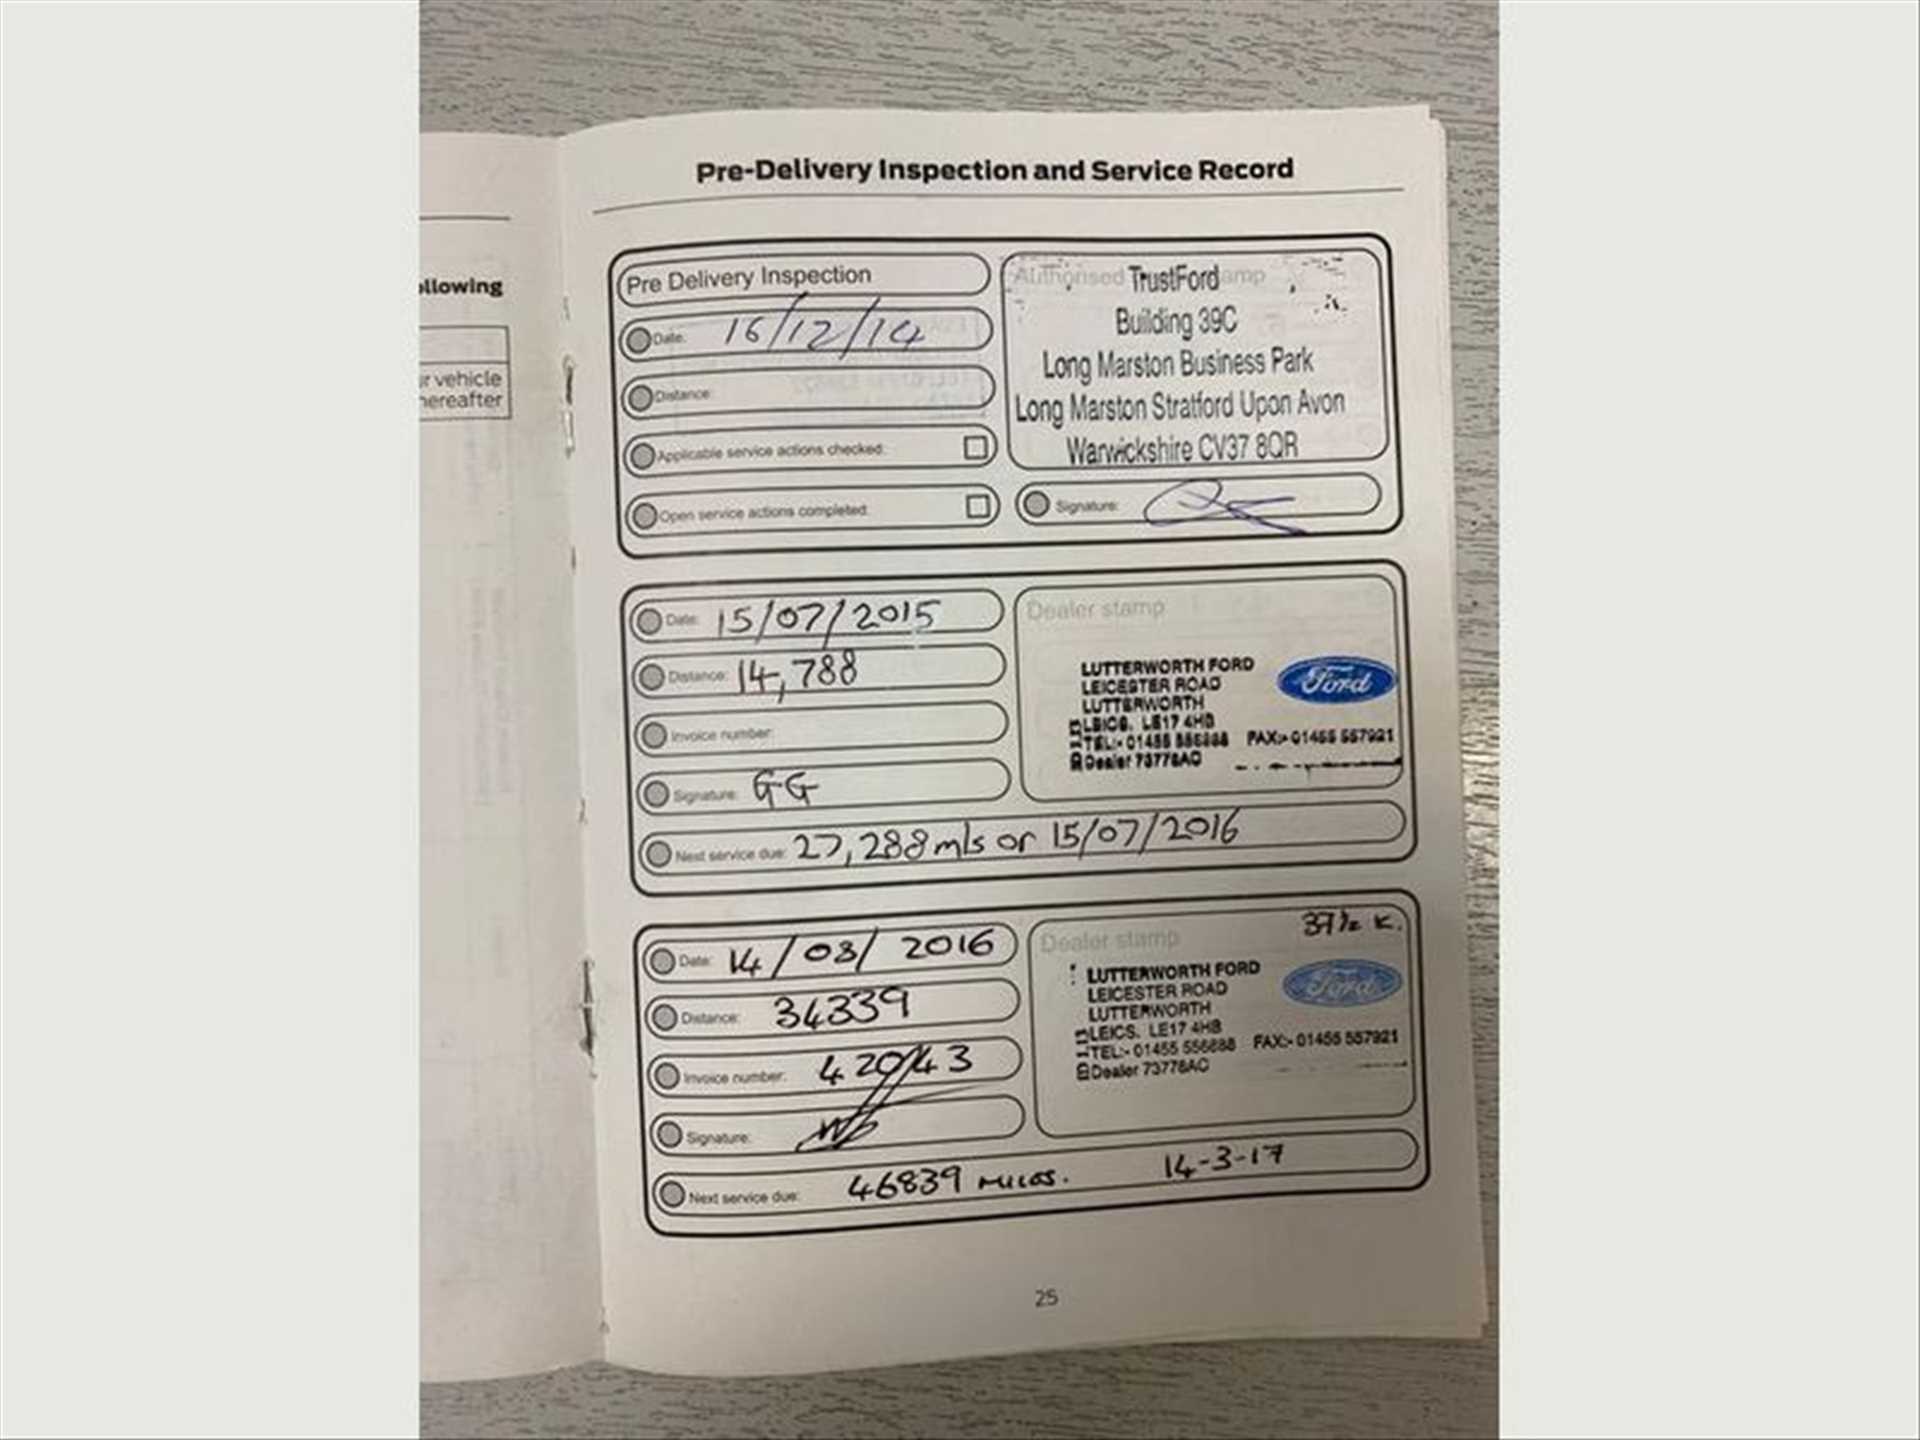 ollowing
r vehicle
hereafter
Pre-Delivery Inspection and Service Record
Pre Delivery Inspection
Date: 16/12/14
Distance:
Applicable service actions checked:
Open service actions completed:
Authorised stamp
TrustFord
Building 39C
Long Marston Business Park
Long Marston Stratford Upon Avon
Warwickshire CV37 8QR
Signature:
Date: 15/07/2015
Distance: 14,788
Invoice number:
Signature: GG
Next service due: 27,288 mls or 15/07/2016
Dealer stamp
LUTTERWORTH FORD
LEICESTER ROAD
LUTTERWORTH
LEICS. LE17 4HB
TEL:- 01455 556688 FAX:- 01455 557921
Dealer 73778AC
Ford
Date: 14/03/2016
Distance: 34339
Invoice number: 42043
Signature:
Next service due: 46839 MILES. 14-3-17
Dealer stamp 37½ K.
LUTTERWORTH FORD
LEICESTER ROAD
LUTTERWORTH
LEICS. LE17 4HB
TEL:- 01455 556688 FAX:- 01455 557921
Dealer 73778AC
Ford
25